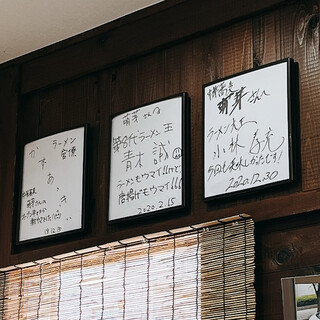 ラーメン
官僚
かずあっき
萌芽さんの
19.12.19
萌芽さんへ
第8代ラーメン王
青木誠
ラーメンもウマイ!!けど
唐揚げもウマイ!!!
2020.2.15
萌芽さんへ
ラーメン大王
小林孝充
今回も美味しかったです!
2020.12.30